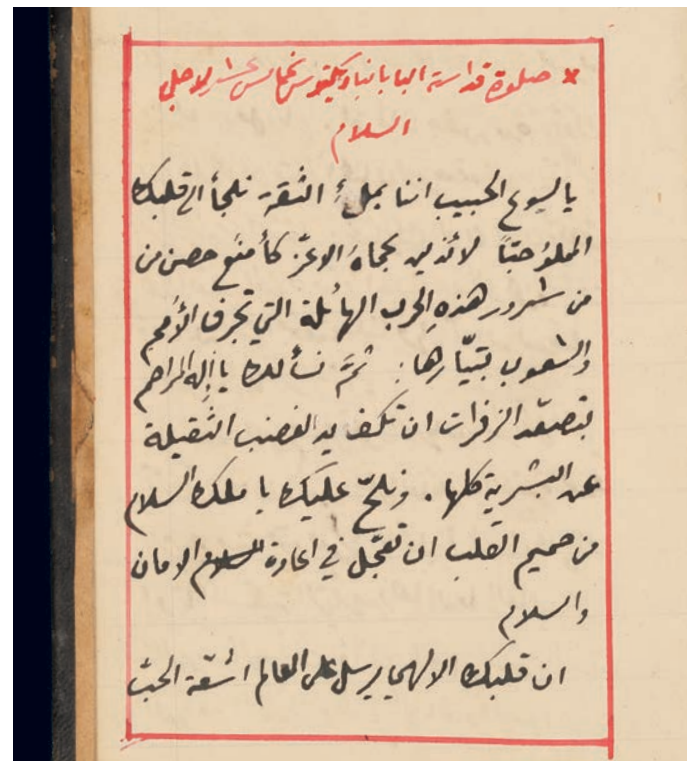 × صلوة قداسة البابا بناديكتوس الخامس عشر لاجل
السلام
يا يسوع الحبيب اننا بملءِ الثقة نلجأ الى قلبك
المملوُ حبّاً لائذين بحماهُ الاعزّ كأمنع حصن من
من شرور هذهِ الحرب الهائلة التي تجرف الأمم
والشعوب بتيّارها: ثمَّ نسألك يا إله المراحم
بتصعّد الزفرات ان تكف يد الغضب الثقيلة
عن البشرية كلها. ونلحّ عليك يا ملك السلام
من صميم القلب ان تعجّل في اعادة السلام الامان
والسلام
ان قلبك الالهي يرسل على العالم اشعّة الحبّ